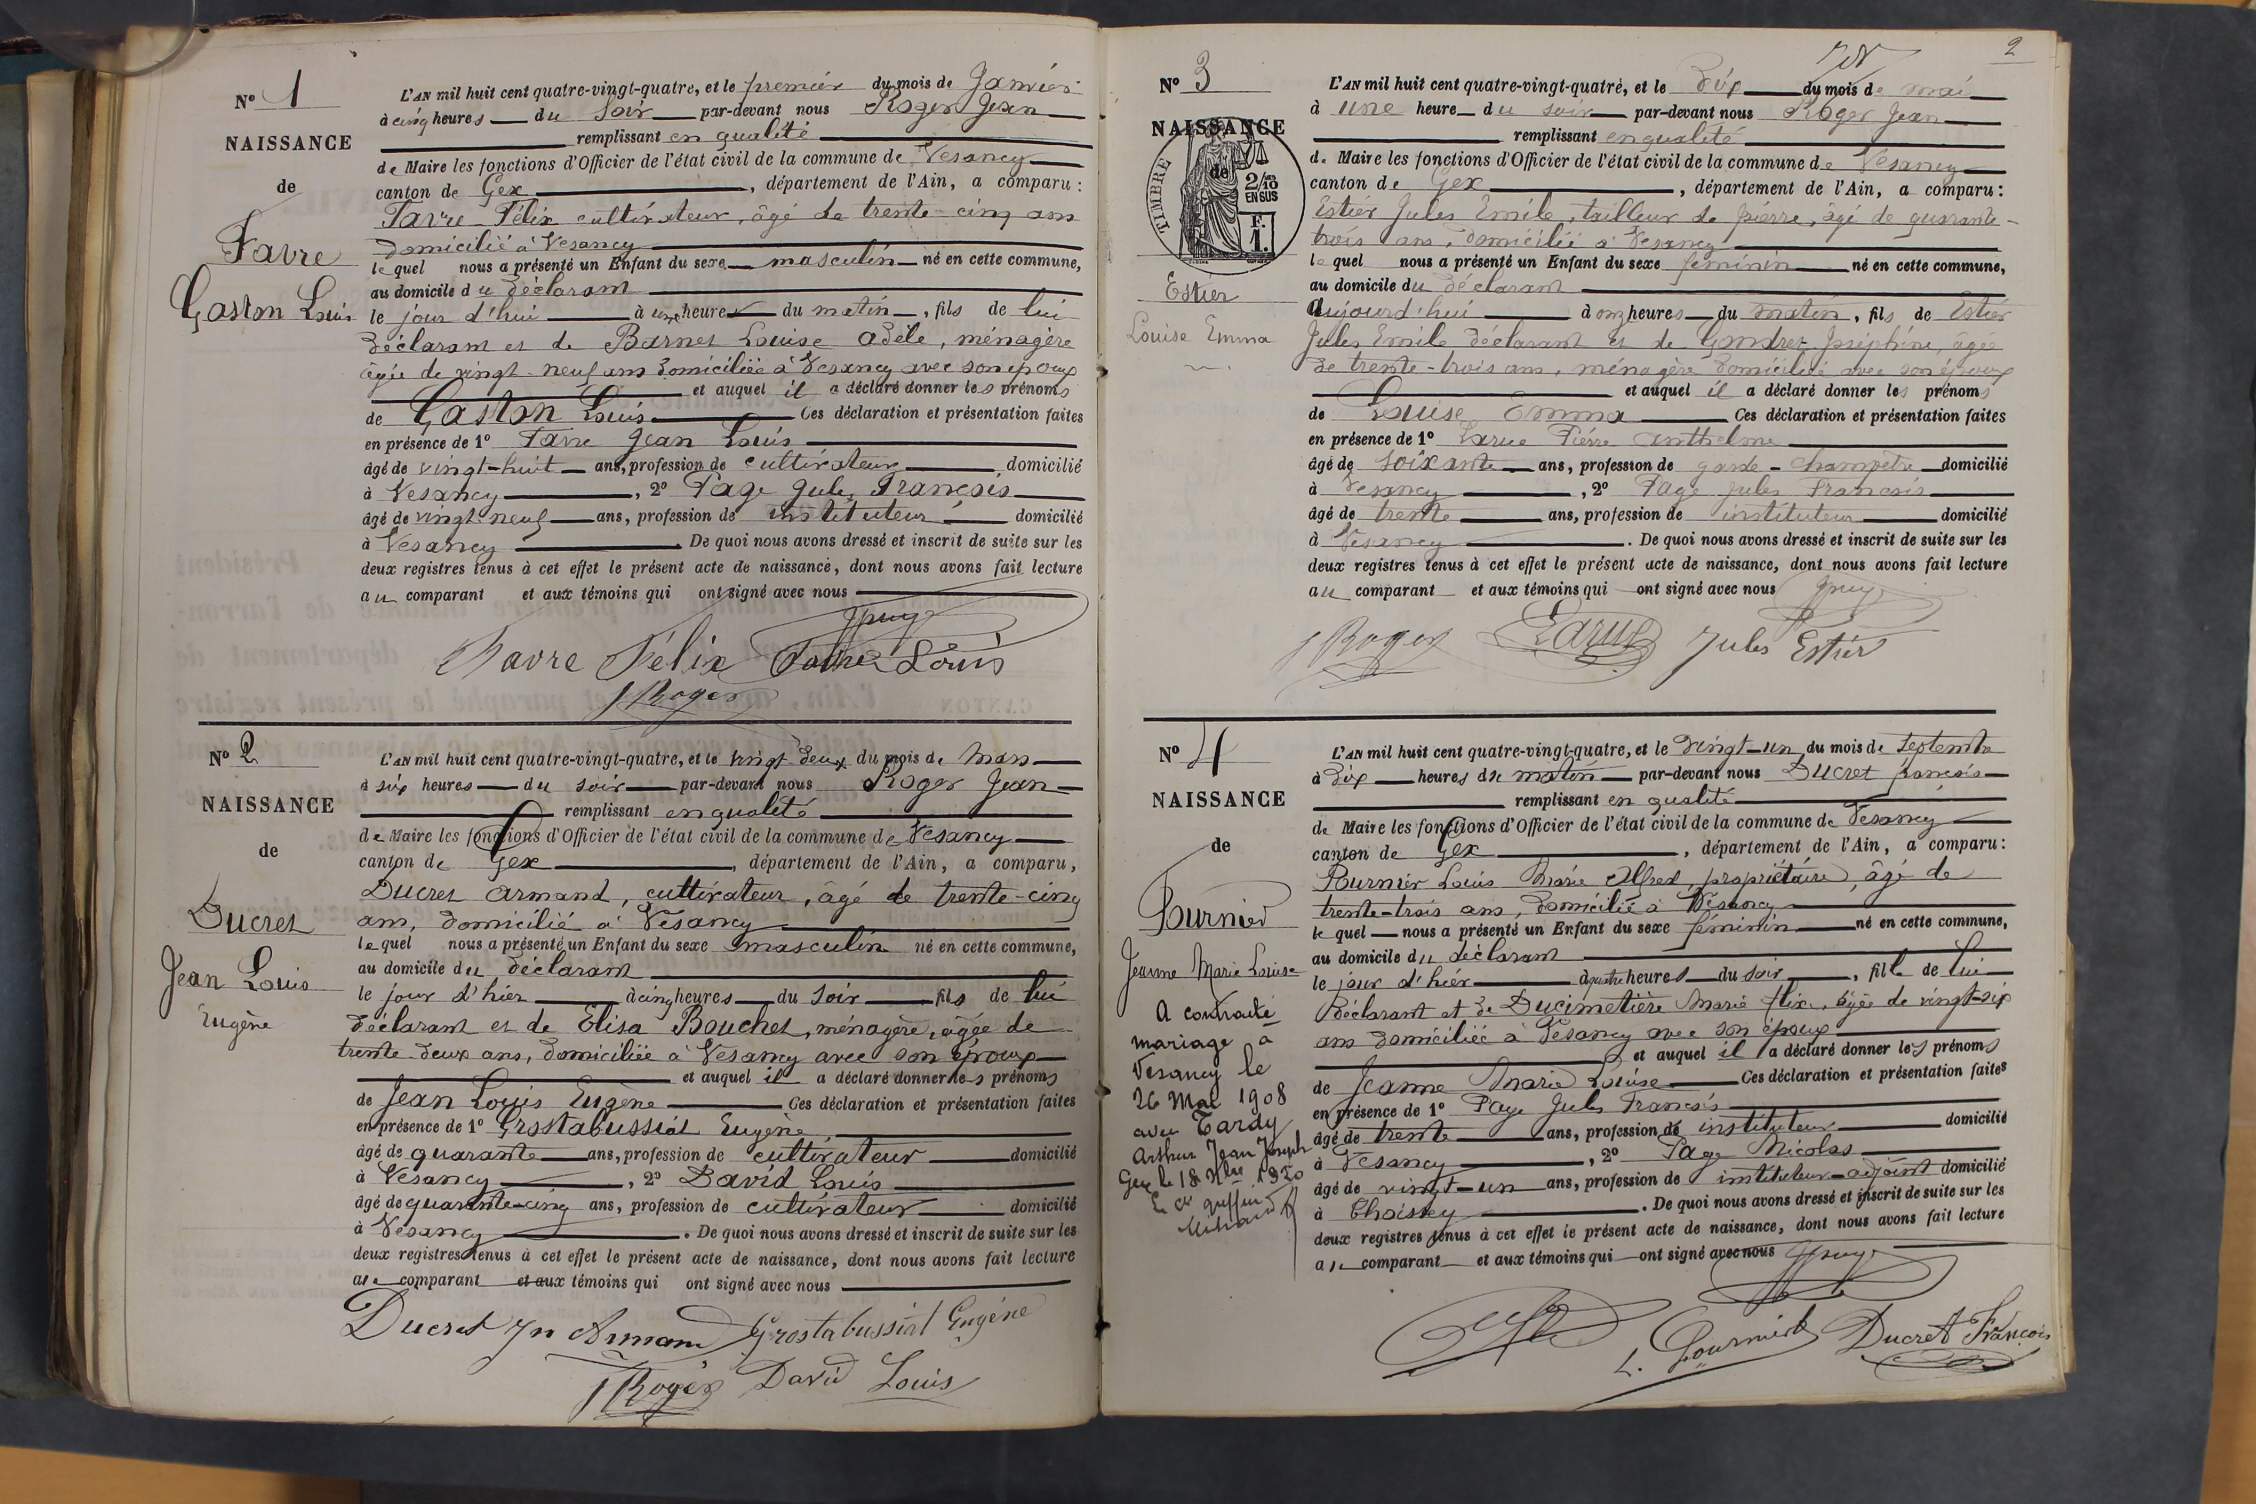 N° 1
NAISSANCE
de
Favre
Gaston Louis
L'AN mil huit cent quatre-vingt-quatre, et le premier du mois de Janvier
à cinq heures du soir par-devant nous Roger Jean
remplissant en qualité
de Maire les fonctions d'Officier de l'état civil de la commune de Vesancy
canton de Gex, département de l'Ain, a comparu :
Favre Félix cultivateur, âgé de trente-cinq ans
domicilié à Vesancy
lequel nous a présenté un Enfant du sexe masculin né en cette commune,
au domicile du déclarant
le jour d'hui à une heure du matin, fils de lui
déclarant et de Barnet Louise Adèle, ménagère
âgée de vingt-neuf ans domiciliée à Vesancy avec son époux
et auquel il a déclaré donner les prénoms
de Gaston Louis Ces déclaration et présentation faites
en présence de 1° Favre Jean Louis
âgé de vingt-huit ans, profession de cultivateur domicilié
à Vesancy, 2° Page Jules François
âgé de vingt-neuf ans, profession de instituteur domicilié
à Vesancy. De quoi nous avons dressé et inscrit de suite sur les
deux registres tenus à cet effet le présent acte de naissance, dont nous avons fait lecture
au comparant et aux témoins qui ont signé avec nous
Favre Félix Favre Louis
J Roger
N° 2
NAISSANCE
de
Ducret
Jean Louis
Eugène
L'AN mil huit cent quatre-vingt-quatre, et le vingt-deux du mois de Mars
à six heures du soir par-devant nous Roger Jean
remplissant en qualité
de Maire les fonctions d'Officier de l'état civil de la commune de Vesancy
canton de Gex, département de l'Ain, a comparu,
Ducret Armand, cultivateur, âgé de trente-cinq
ans, domicilié à Vesancy
lequel nous a présenté un Enfant du sexe masculin né en cette commune,
au domicile du déclarant
le jour d'hier à cinq heures du soir fils de lui
déclarant et de Elisa Bouchet, ménagère, âgée de
trente-deux ans, domiciliée à Vesancy avec son époux
et auquel il a déclaré donner les prénoms
de Jean Louis Eugène Ces déclaration et présentation faites
en présence de 1° Grostabussiat Eugène
âgé de quarante ans, profession de cultivateur domicilié
à Vesancy, 2° David Louis
âgé de quarante-cinq ans, profession de cultivateur domicilié
à Vesancy. De quoi nous avons dressé et inscrit de suite sur les
deux registres tenus à cet effet le présent acte de naissance, dont nous avons fait lecture
au comparant et aux témoins qui ont signé avec nous
Ducret Jn Armand Grostabussiat Eugéne
J Roger David Louis
2
N° 3
NAISSANCE
de
TIMBRE
2/10 EN SUS
F.
1.
Estier
Louise Emma
L'AN mil huit cent quatre-vingt-quatre, et le dix du mois de mai
à une heure du soir par-devant nous Roger Jean
remplissant en qualité
de Maire les fonctions d'Officier de l'état civil de la commune de Vesancy
canton de Gex, département de l'Ain, a comparu :
Estier Jules Emile, tailleur de pierre, âgé de quarante-
trois ans, domicilié à Vesancy
lequel nous a présenté un Enfant du sexe féminin né en cette commune,
au domicile du déclarant
aujourd'hui à onze heures du matin, fils de Estier
Jules Emile déclarant et de Gondret Joséphine, âgée
de trente-trois ans, ménagère domiciliée avec son époux
et auquel il a déclaré donner les prénoms
de Louise Emma Ces déclaration et présentation faites
en présence de 1° Larue Pierre Anthelme
âgé de soixante ans, profession de garde-champêtre domicilié
à Vesancy, 2° Page Jules François
âgé de trente ans, profession de instituteur domicilié
à Vesancy. De quoi nous avons dressé et inscrit de suite sur les
deux registres tenus à cet effet le présent acte de naissance, dont nous avons fait lecture
au comparant et aux témoins qui ont signé avec nous
J Roger Larue Jules Estier
N° 4
NAISSANCE
de
Fournier
Jeanne Marie Louise
A contracté
mariage à
Vesancy le
26 Mai 1908
avec Tardy
Arthur Jean Joseph
Gex le 18 Xbre 1920
L'AN mil huit cent quatre-vingt-quatre, et le vingt-un du mois de septembre
à dix heures du matin par-devant nous Ducret françois
remplissant en qualité
de Maire les fonctions d'Officier de l'état civil de la commune de Vesancy
canton de Gex, département de l'Ain, a comparu :
Fournier Louis Marie Alfred, propriétaire, âgé de
trente-trois ans, domicilié à Vesancy
lequel nous a présenté un Enfant du sexe féminin né en cette commune,
au domicile du déclarant
le jour d'hier à quatre heures du soir, fille de lui
déclarant et de Ducimetière Marie Alix, âgée de vingt-six
ans domiciliée à Vesancy avec son époux
et auquel il a déclaré donner les prénoms
de Jeanne Marie Louise Ces déclaration et présentation faites
en présence de 1° Page Jules François
âgé de trente ans, profession de instituteur domicilié
à Vesancy, 2° Page Nicolas
âgé de vingt-un ans, profession de instituteur-adjoint domicilié
à Choisey. De quoi nous avons dressé et inscrit de suite sur les
deux registres tenus à cet effet le présent acte de naissance, dont nous avons fait lecture
au comparant et aux témoins qui ont signé avec nous
L. Fournier Ducret François